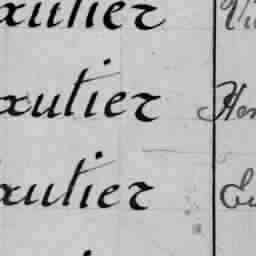 autier Vi
autier Hen
autier Eu